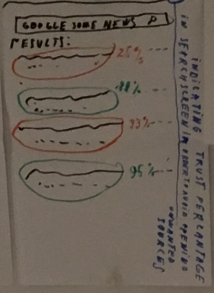 GOOGLE SOME NEWS P
RESULTS:
25%
88%
33%
95%
INDICATING TRUST PERCANTAGE
IN SEARCHSCREEN
UNWANTED
SOURCES